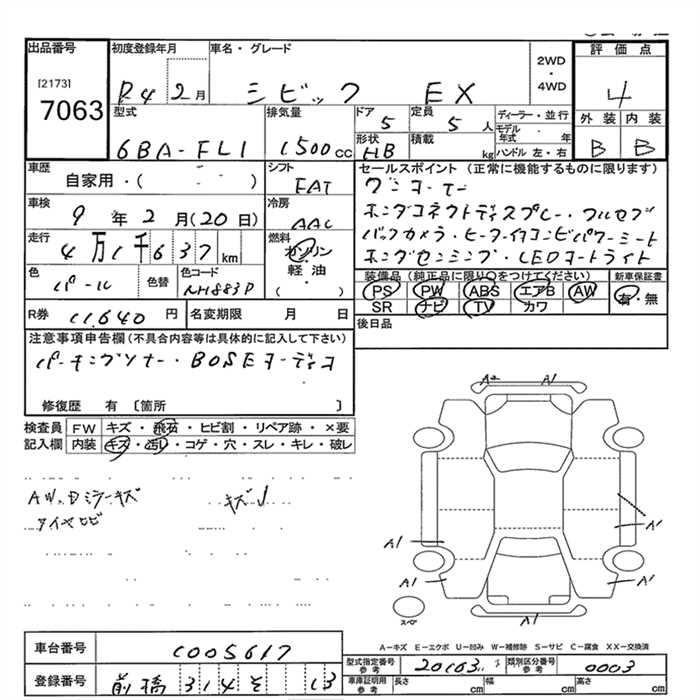 出品番号
[2173]
7063
初度登録年月
R4 2月
車名・グレード
シビック EX
2WD
・
4WD
評価点
4
外装 内装
B B
型式
6BA-FL1
排気量
1500cc
ドア
5
定員
5人
形状
HB
積載
kg
ディーラー・並行
モデル年式 年
ハンドル 左・右
車歴
自家用・( )
シフト
FAT
セールスポイント (正常に機能するものに限ります)
ワンオーナー
ホンダコネクトディスプレー・フルセグ
バックカメラ・ヒーター付コンビパワーシート
ホンダセンシング・LEDオートライト
車検
9年2月(20日)
冷房
AAC
走行
4万1千637km
燃料
ガソリン
・
軽油
( )
色
パール
色替
色コード
NH883P
装備品 (純正品に限り○をつけてください)
PS PW ABS エアB AW
SR ナビ TV カワ
新車保証書
有・無
R券 11,640円
名変期限 月 日
後日品
注意事項申告欄(不具合内容等は具体的に記入して下さい)
パーキングソナー・BOSEオーディオ
修復歴 有 〔箇所 〕
検査員記入欄
FW キズ・飛石・ヒビ割・リペア跡・×要
内装 キズ・汚レ・コゲ・穴・スレ・キレ・破レ
AW、Dミラーキズ
タイヤヒビ
キズ
A2 A1
A1
A1
A1
A1
A1
スペア
A-キズ E-エクボ U-凹み W-補修跡 S-サビ C-腐食 XX-交換済
車台番号
C005617
登録番号
前橋 314 そ 13
型式指定番号
参考
20163
類別区分番号
参考
0003
車庫証明用
参考
長さ cm
幅 cm
高さ cm